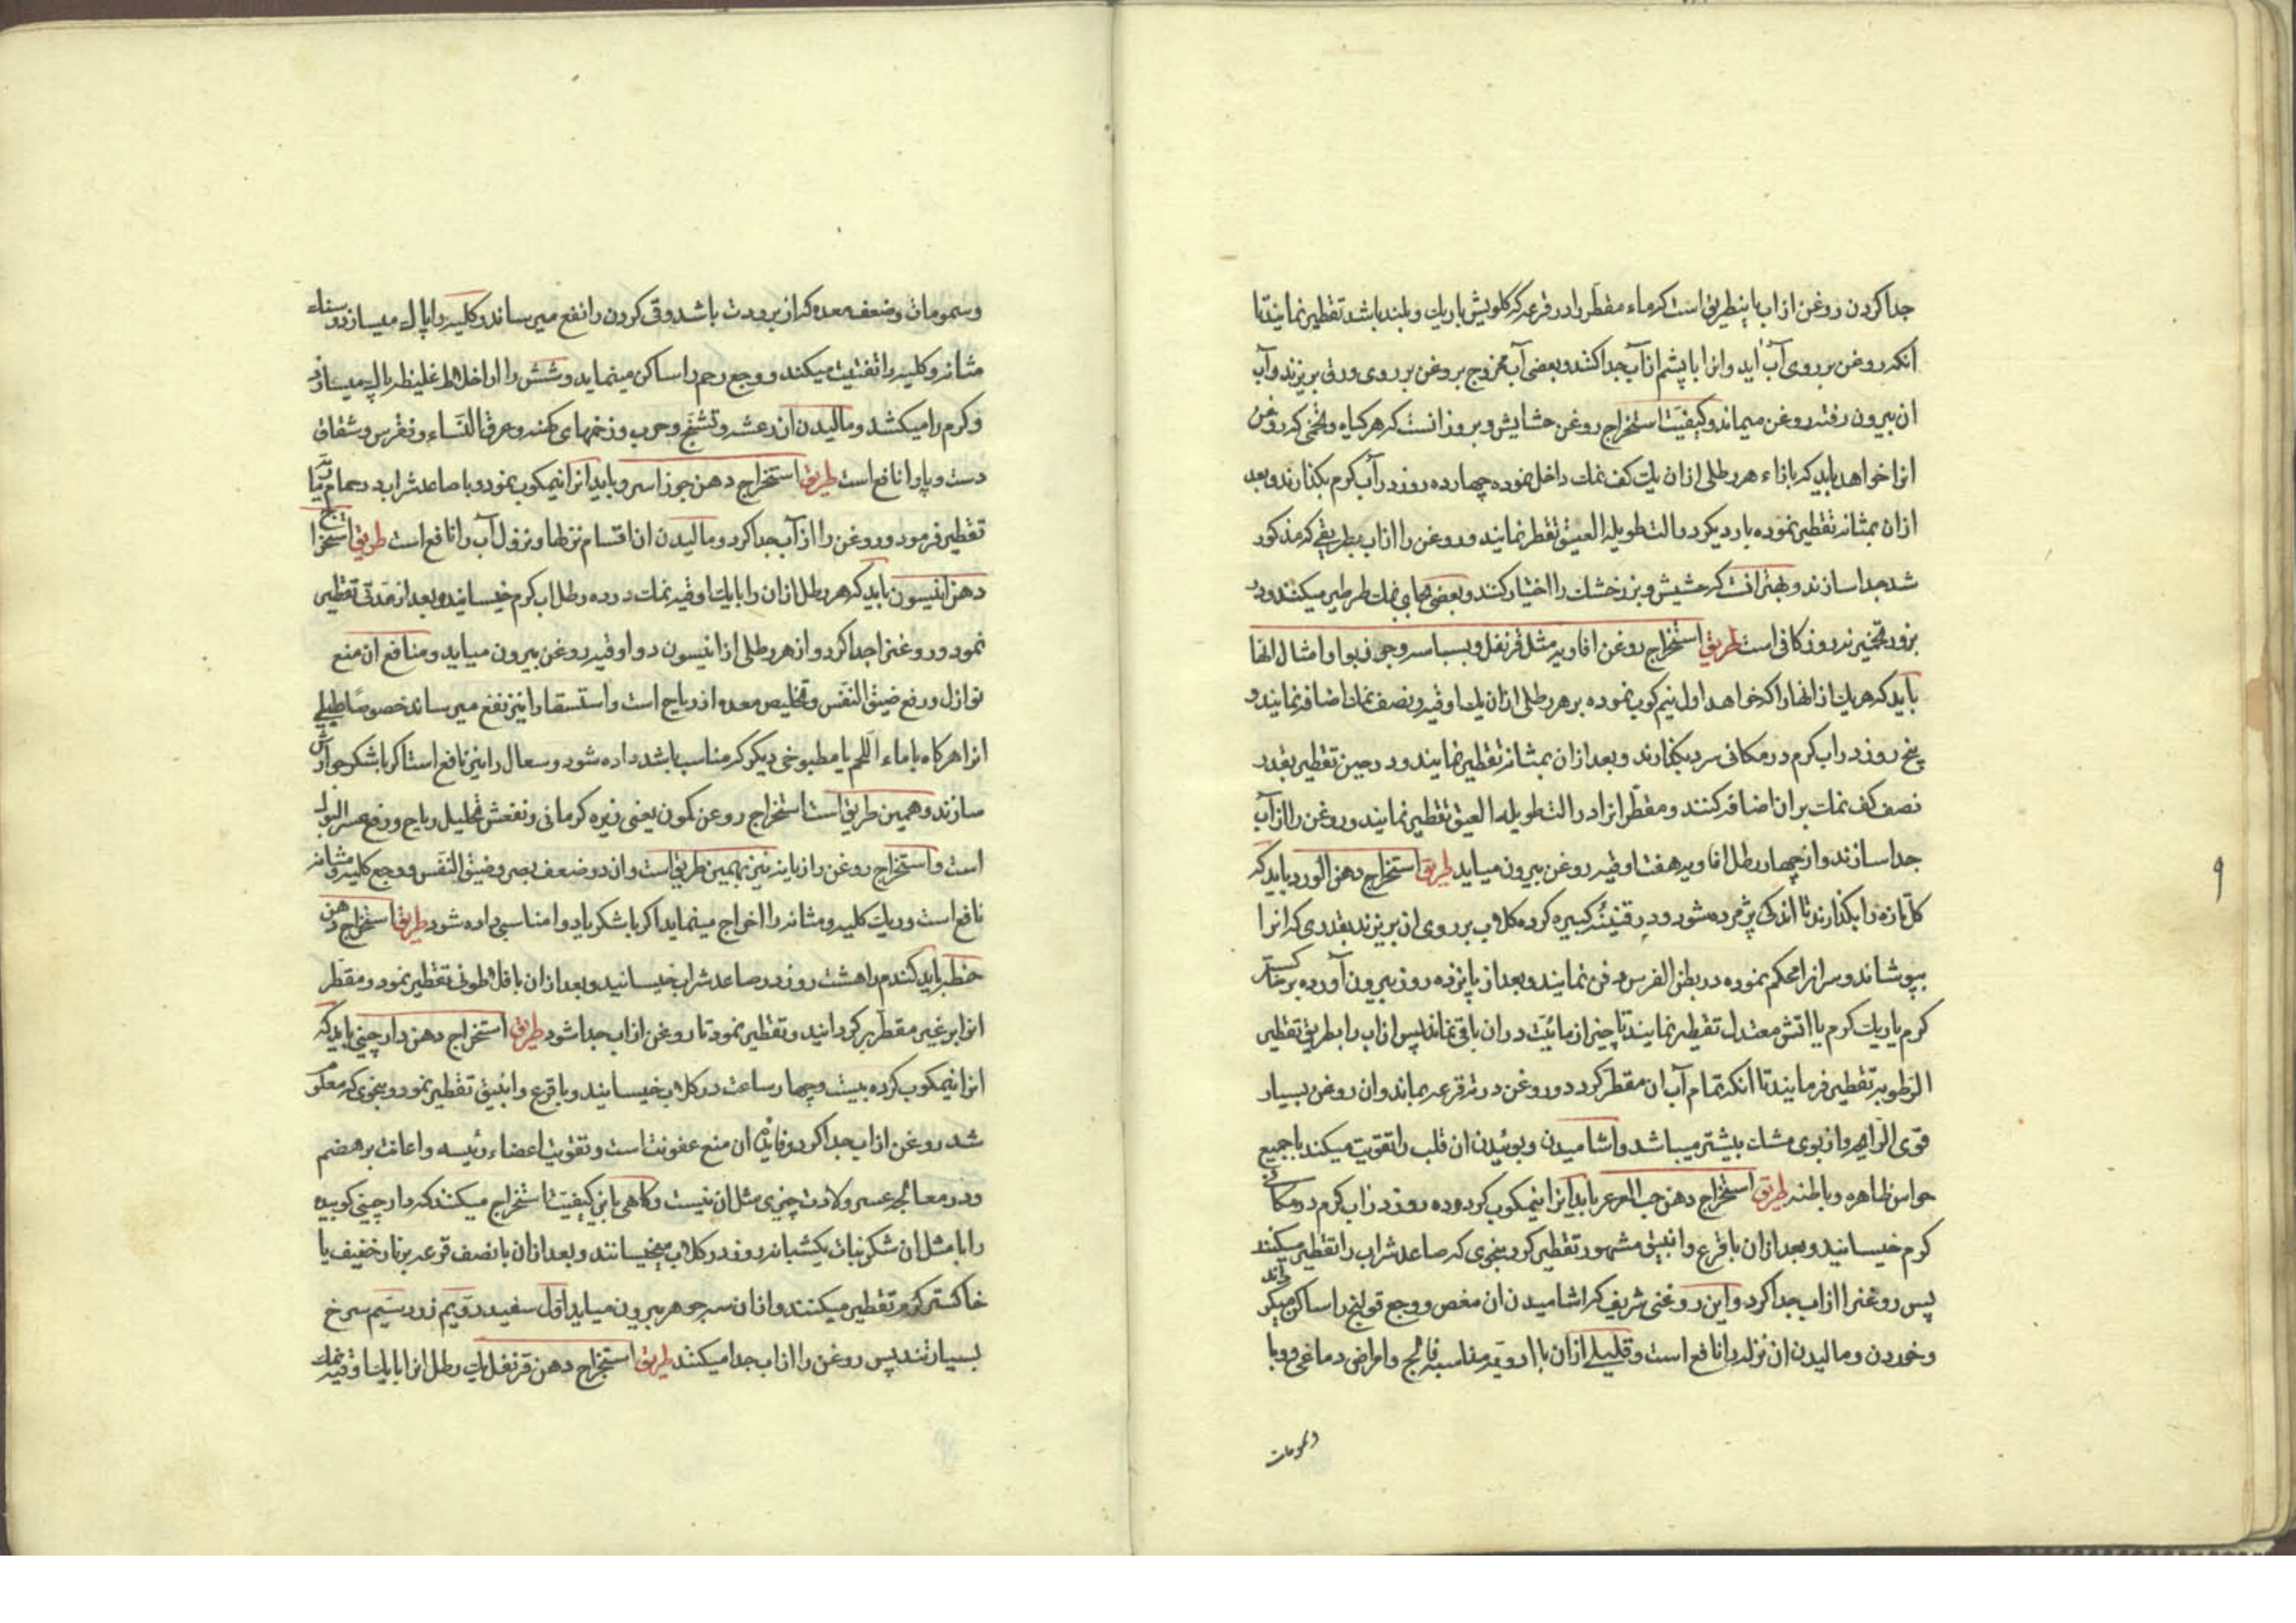 جدا کردن روغن از اب باینطریق است که ماء مقطر را در قرعه که گلویش باریك و بلند باشد تقطیر نمایند تا
آنکه روغن بر روی آب آید و انرا با پشم از آب جدا کنند و بعضی آب ممزوج بروغن بر روی ورق بریزند و آب
ان بیرون رفته روغن میماند و کیفیت استخراج روغن حشایش و بزور انست که هر کیاه و تخمی که روغن
انرا خواهد باید که بازاء هر رطلی از ان یك کف نمك داخل نموده چهارده روز در آب کرم بکذارند و بعد
از ان بمثانه تقطیر نموده بار دیکر در الت طویله العنق تقطیر نمایند و روغن را از اب بطریقی که مذکور
شد جدا سازند و بهتر انست که حشیش و بزر خشك را اختیار کنند و بعضی بجای نمك طرطیر میکنند و در
بزور تخمیر نه روز کافی است طریق استخراج روغن افاویه مثل قرنفل و بسباسه و جوزبوا و امثال انها
باید که هر یك از انها را که خواهد اول نیم کوب نموده بر هر رطلی از ان یك اوقیه و نصف نمك اضافه نمایند و
پنج روز در اب کرم در مکانی سرد بکذارند و بعد از ان بمثانه تقطیر نمایند و در حین تقطیر بقدر
نصف کف نمك بر ان اضافه کنند و مقطر انرا در الت طویله العنق تقطیر نمایند و روغن را از آب
جدا سازند و از چهار رطل افاویه هفت اوقیه روغن بیرون میاید طریق استخراج دهن الورد باید که
کل تازه را بکذارند تا اندکی پژمرده شود و در قنینهٔ کبیره کرده کلاب بر روی ان بریزند بقدری که انرا
بپوشاند و سر انرا محکم نموده در بطن الفرس دفن نمایند و بعد از پانزده روز بیرون آورده بر خاکستر
کرم یا ریك کرم یا اتش معتدل تقطیر نمایند تا چیز از مائیت در ان باقی نماند پس ان اب را بطریق تقطیر
الرطوبه تقطیر فرمایند تا انکه تمام آب ان مقطر کردد و روغن در ته قرعه بماند و ان روغن بسیار
قوی الرایحه و از بوی مشك بیشتر میباشد و اشامیدن و بوئیدن ان قلب را تقویت میکند با جمیع
حواس ظاهره و باطنه طریق استخراج دهن حب العرعر باید انرا نیمکوب کرده ده روز در اب کرم در مکان
کرم خیسانید و بعد از ان با قرع و انبیق مشهور تقطیر کرد بنحوی که صاعد شراب را تقطیر میکنند
پس روغنرا از اب جدا کرد و این روغنی شریف که اشامیدن ان مغص و وجع قولنج را ساکن میکرداند
و خوردن و مالیدن ان نزله را نافع است و قلیلی از ان با ادویه مناسبه فالج و امراض دماغی و وبا
و سمومات
۹
و سمومات و ضعف معده که از برودت باشد و قی کردن را نفع میرساند و کلیه را پاك میسازد و سناء
مثانه و کلیه را تفتیت میکند و وجع رحم را ساکن مینماید و شش را از اخلاط غلیظه پاك میسازد
و کرم را میکشد و مالیدن ان رعشه و تشنج و جرب و زخمهای کهنه و عرق النساء و نقرس و شقاق
دست و پا را نافع است طریق استخراج دهن جوز اسرو باید انرا نیمکوب نمود و با صاعد شراب در حمام
تقطیر فرمود و روغن را از آب جدا کرد و مالیدن ان اقسام نزلها و نزول آب را نافع است طریق استخراج
دهن انیسون باید که هر رطل از ان را با یك اوقیه نمك در ده رطل اب کرم خیسانید و بعد از مدتی تقطیر
نمود و روغنرا جدا کرد و از هر رطلی از انیسون دو اوقیه روغن بیرون میاید و منافع ان منع
نوازل و رفع ضیق النفس و تخلیص معده از ریاح است و استسقا را نیز نفع میرساند خصوصا طبلی
انرا هرکاه با ماء اللحم یا مطبوخی دیکر که مناسب باشد داده شود و سعال را نیز نافع است اکر با شکر جوارش
سازند و همین طریق است استخراج روغن کمون یعنی زیره کرمانی و نفعش تحلیل ریاح و رفع عسر البول
است و استخراج روغن رازیانه نیز بهمین طریق است و ان در ضعف بصر و ضیق النفس و وجع کلیه و مثانه
نافع است و ریك کلیه و مثانه را اخراج مینماید اکر با شکر یا دوا مناسبی داده شود طریق استخراج دهن
حنطه باید کندم را هشت روز در صاعد شراب خیسانید و بعد از ان با فلاطونی تقطیر نمود و مقطر
انرا بر غیر مقطر برکردانید و تقطیر نمود تا روغن از اب جدا شود طریق استخراج دهن دارچینی باید که
انرا نیمکوب کرده بیست و چهار ساعت در کلاب خیسانید و با قرع و انبیق تقطیر نمود و بنحوی که معلوم
شد روغن از اب جدا کرد و فایدهٔ ان منع عفونت است و تقویت اعضاء رئیسه و اعانت بر هضم
و در معالجه عسر ولادت چیزی مثل ان نیست و کاهی باین کیفیت استخراج میکنند که دارچینی کوبیده
را با مثل ان شکر نبات یکشبانه روز در کلاب میخیسانند و بعد از ان با نصف قرعه بر نار خفیف یا
خاکستر کرم تقطیر میکنند و از ان سه جوهر بیرون میاید اول سفید دویم زرد سیم سرخ
بسیار تند پس روغن را از اب جدا میکنند طریق استخراج دهن قرنفل یك رطل انرا با یك اوقیه نمك